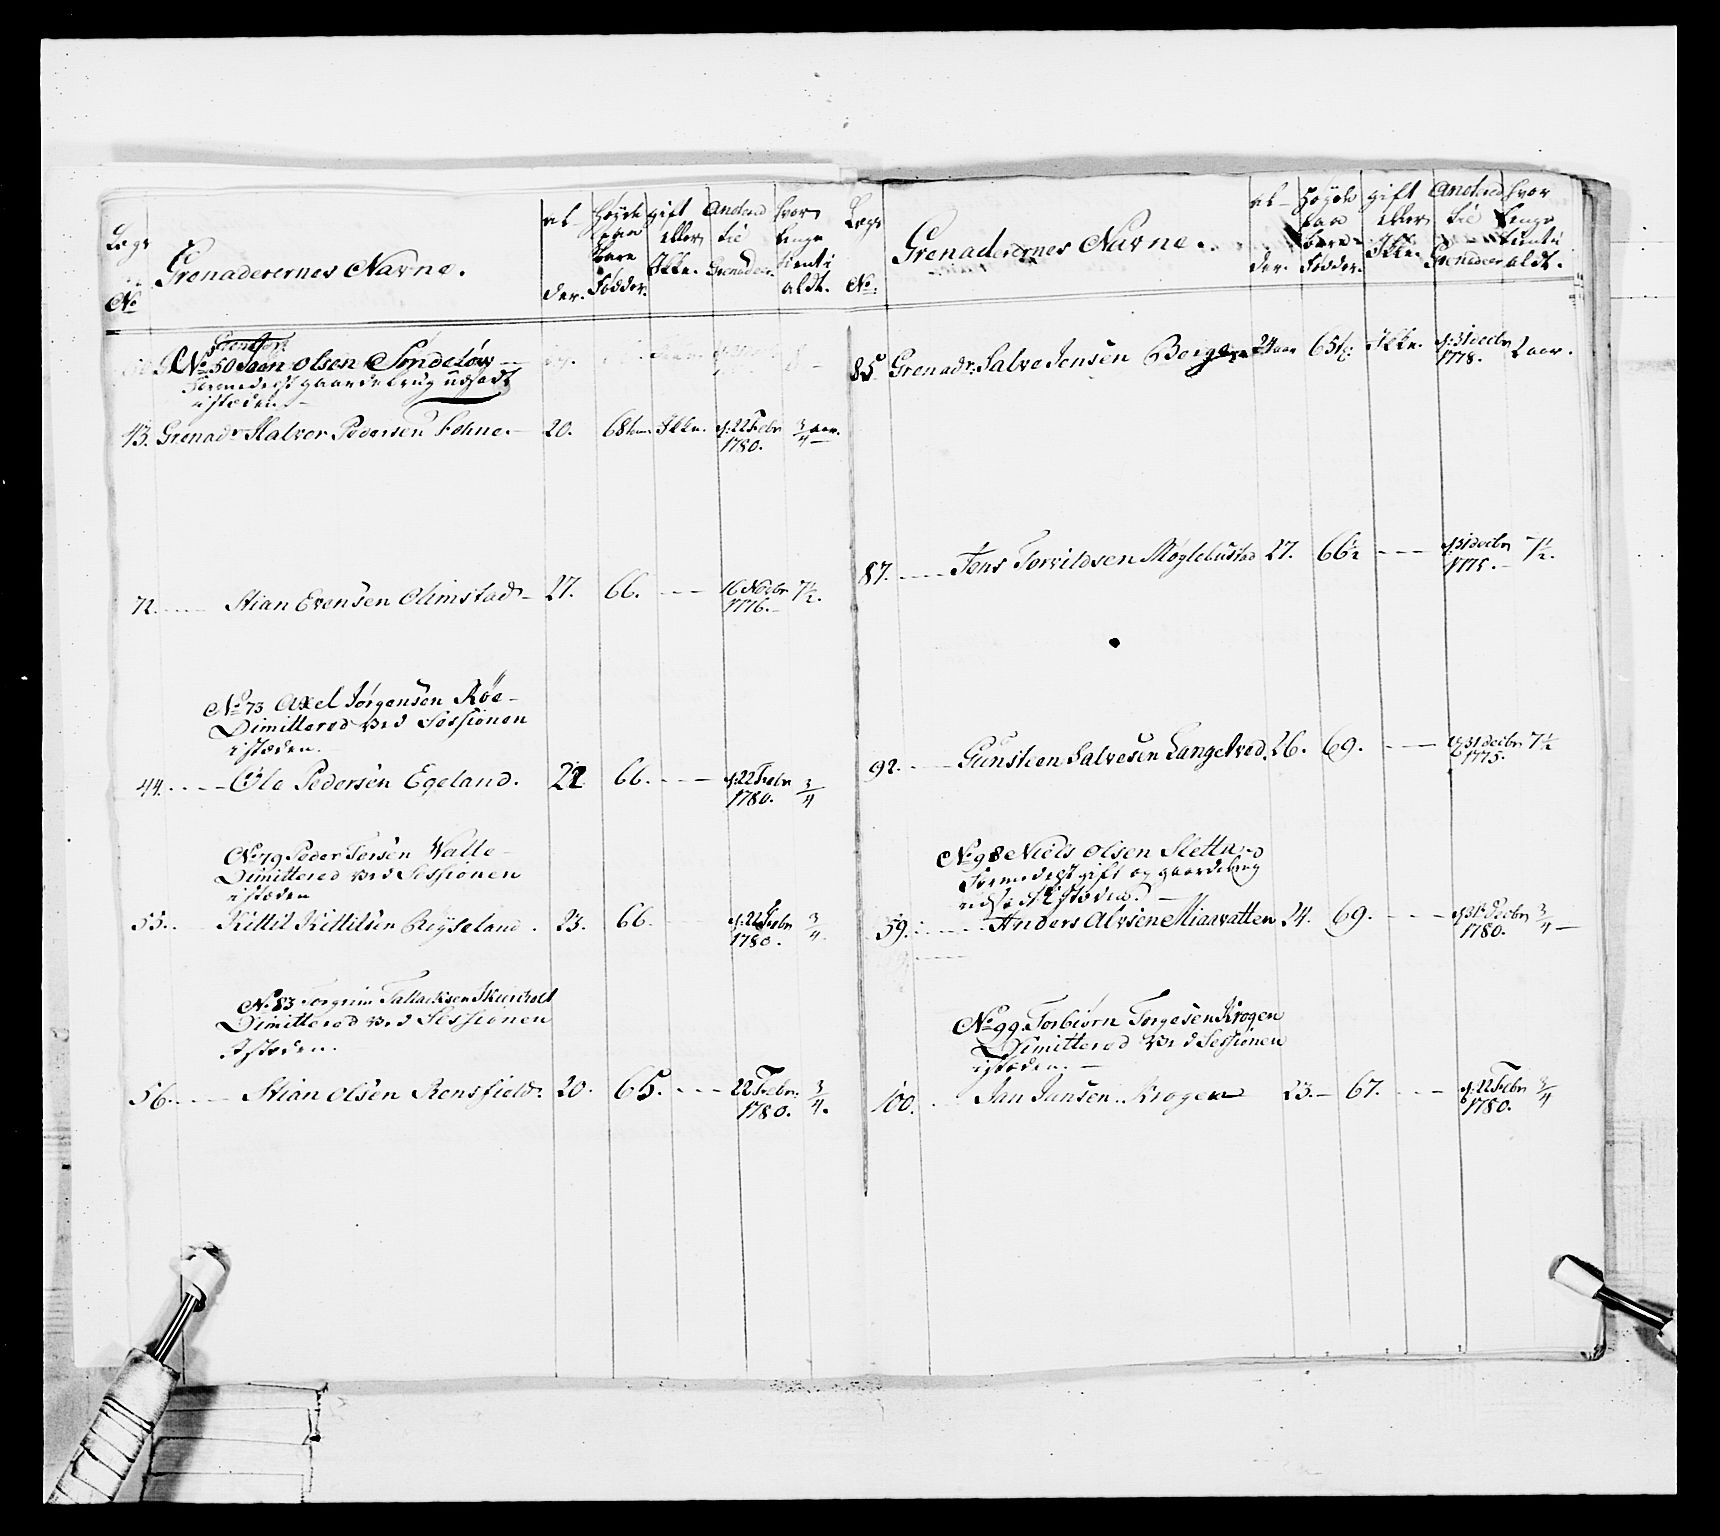 Lægs No
Grenaderernes Navne.
al-der.
Høyde paa bare Fødder.
gift eller Ikke.
Antaed til Grenadeer
hvor lenge tient i aldt.
No 50 Joen Olsen Sondeløv
formedelst gaardebrug udsadt
istæden.
43. Grenadr Halvor Pedersen Fohne. 20. 68 Ikke. d: 22 Febr 1780. 3/4 aar.
72. Stian Evensen Olimstad 27. 66. 16 1776. 7 1/2.
No 73 Axel Jørgensen Røe
Dimittered ved Sessionen
istæden.
44. Ole Pedersen Egeland. 22 66. d: 22 Febr 1780. 3/4
No 79 Peder Valle
Dimittered ved Sessionen
istæden
55. Kittil Kittilsen Røyseland. 23. 66. d: 22 Febr 1780. 3/4.
No 83 Torgrim Tallachsen
Dimittered ved Sessionen
istæden.
56. Stian Olsen Rensfield. 20. 65. 22 Febr. 1780. 3/4.
Lægs No:
Grenaderernes Navne.
al-der.
Høyde paa bare Fødder.
gift eller Ikke.
Antaed til Grenadeer
hvor lenge tient i aldt.
85 Grenadr. Salve Jensen 24 aar 65 Ikke. d: 31 decbr 1778. 2 aar.
87. Jens Torvildsen Møglebustad 27. 66 1/2 d: 31 decbr 1775. 7 1/2.
92. Gunsteen Salvesen Langetved. 26. 69. d 31 decbr 1775. 7 1/2
No 98 Niels Olsen Slettne
formedelst gift og gaardebrug
udsadt istæden.
59. Anders Alvsen Miaavatten 24. 69. d: 31 Decbr 1780. 3/4
No 99. Torbiørn Torgesen Krogen
Dimittered ved Sessionen
istæden.
100. Jan Jansen Krogen 23. 67. d: 22 Febr 1780. 3/4